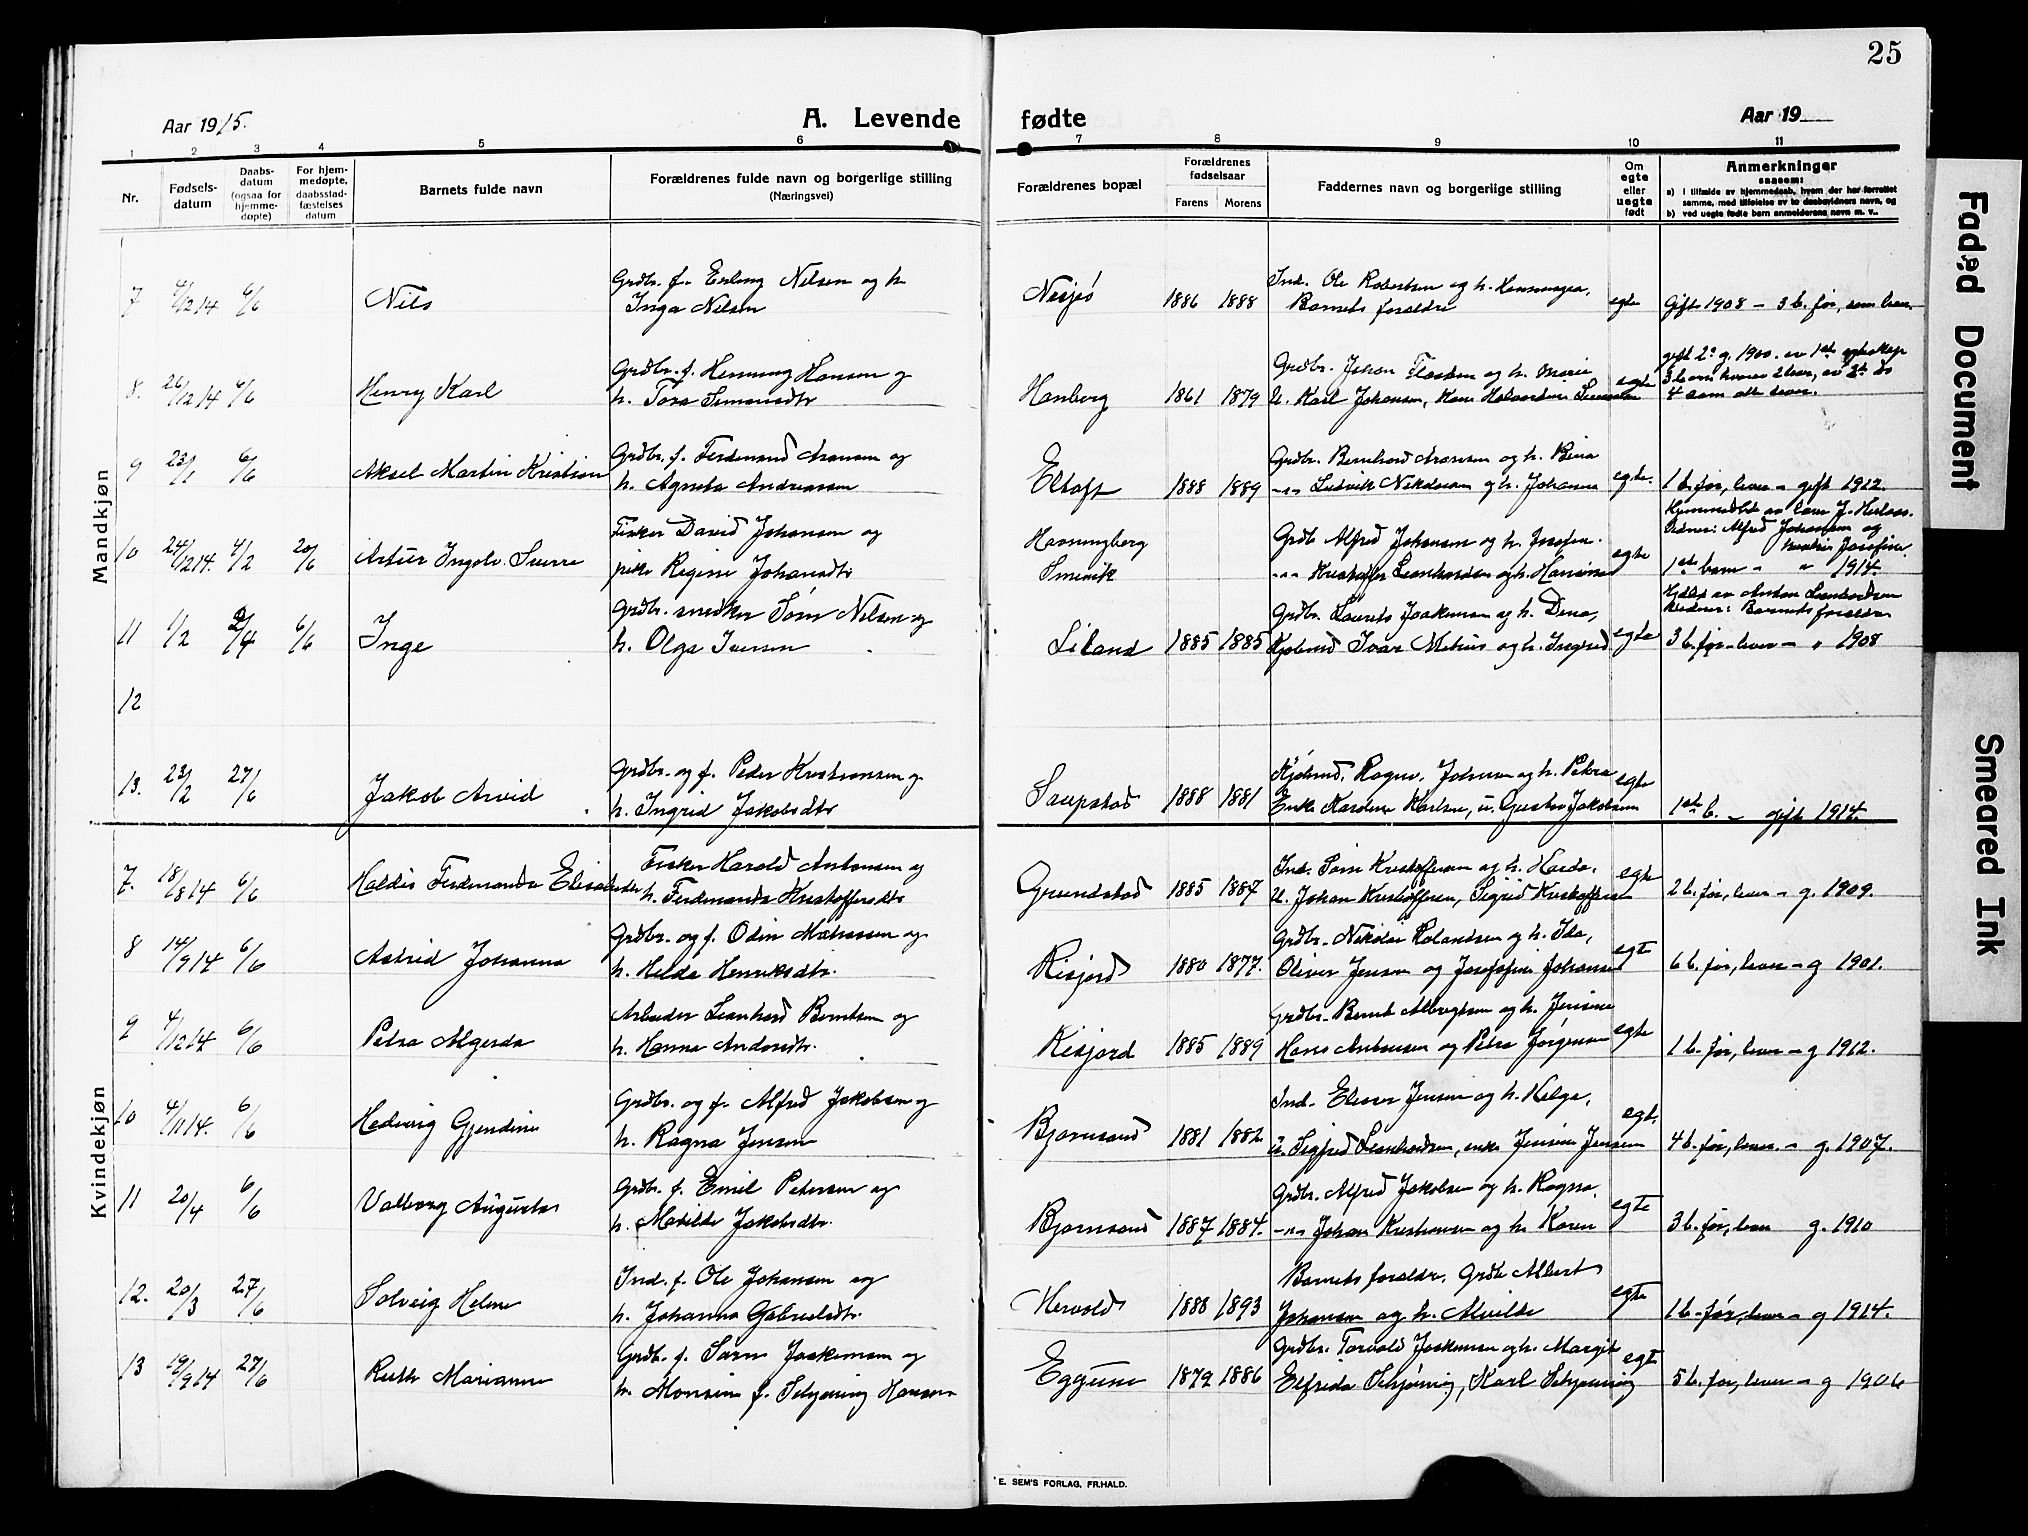 25
Aar 1915.
A. Levende fødte
Aar 19
1 2 3 4 5 6 7 8 9 10 11
Nr.
Fødsels-
datum
Daabs-
datum
(ogsaa for
hjemme-
døpte)
For hjem-
medøpte,
daabsstad-
fæstelses
datum
Barnets fulde navn
Forældrenes fulde navn og borgerlige stilling
(Næringsvei)
Forældrenes bopæl
Forældrenes
fødselsaar
Farens Morens
Faddernes navn og borgerlige stilling
Om
egte
eller
uegte
født
Anmerkninger
saasom:
a) i tilfælde av hjemmedaab, hvem der har forrettet
samme, med tilføielse av to daabsvidners navn, og
b) ved uegte fødte barn anmelderens navn m. v..
Mandkjøn
Grdbr. f. Erling Nilsen og h.
7 6/6 Nils
Inga Nilsen
Nesjø 1886 1888
Ind. Ole Robertsen og h.
Barnets forældre
egte Gift 1908 – 3 b. før, som lever.
Grdbr. f. Henning Hansen og
8. 26/12 14 6/6 Henry Karl
h. Tora
Hanberg 1861 1879
Grdbr. Johan og h. Marie
U. Karl Johansen, Hans
egte
gift 2° g. 1900. av 1ste egteskap
4 som alle lever.
Grdbr. f. Ferdinand Aronsen og
9 23/1 6/6 Aksel Martin Kristian
h. Agneta Andreassen
Eltoft 1888 1889
Grdbr. Bernhard Aronsen og h. Bina
–"– Ludvik Nikolaisen og h. Johanna
egte. 1 b. før, lever – gift 1912.
Fisker David Johansen og
10 24/12 14. 4/2 20/6 Artur Ingolv Sverre
pike Regine Johansdtr
Smevik
Grdb. Alfred Johansen og h. Josefine.
–"– Kristoffer Leonhardsen og h. Hansine
egte
Vidner: Alfred Johansen og
hustru Josefine.
1ste barn – " 1914.
Grdbr. snedker Sørn Nilsen og
11 1/2 2/4 6/6 Inge
h. Olga Iversen
Liland 1885 1885
Grdbr. Laurits Joakimsen og h. Dina,
Ivar Meløius og h. Ingrid
egte
Hjdbt av Anton Leonhardsen
Vidner: Barnets forældre
3 b. før – lever – " 1908
12
Grdbr. og f. Peder Kristiansen og
13. 23/2 27/6 Jakob Arvid
h. Ingrid Jakobsdtr
Saupstad 1888 1881
Ragnv. Johnsen og h. Petra
Enke Karoline Karlsen, u. Gustav Jakobsen
egte 1ste b. – gift 1914.
Kvindekjøn
Fisker Harald Antonsen og
7. 18/8 14 6/6 Haldis Ferdinanda Elisabeth
h. Ferdinanda Kristoffersdtr
Grundstad 1885 1887
Ind. Sørn Kristoffersen og h. Harda.
U. Johan Kristoffersen, Sigrid Kristoffersen
egte 2 b. før, lever – g. 1909.
Grdbr. og f. Odin Mathissen og
8 14/9 14 6/6 Astrid Johanna
h. Hilda Henriksdtr.
Risjord 1880 1877.
Grdbr. Nikolai Rolandsen og h. Ida,
Oliver Jensen og Josefine Johansen
egte 6 b. før, lever – g 1901.
Arbeider Leonhard Berntsen og
9 4/12 14 6/6 Petra Algerda
h. Hanna Andorsdtr.
Risjord 1885 1889
Grdbr. Bernt Albregtsen og h. Jensine
Hans Antonsen og Petra Jørgensen
egte 1 b. før, lever – g 1912.
Grdbr. og f. Alfred Jakobsen og
10 4/11 14. 6/6 Hedvig Gjendine
h. Ragna Jensen
Bjørnsand 1881 1882
Ind. Elisser Jensen og h. Helga,
u. Sigfred Leonhardsen, enke Jensine Jensen
egte. 4 b. før, lever. – g. 1907.
Grdbr. f. Emil Petersen og
11 20/4 6/6 Valborg Augusta
h. Matilde Jakobsdtr.
Bjørnsand 1887 1884.
Grdbr. Alfred Jakobsen og h. Ragna.
–"– Johan Kristiansen og h. Karen
egte 3 b. før, lever g. 1910
Ind. f. Ole Johansen og
12. 20/3 27/6 Solveig Helene
h. Johanna Gabrielsdtr.
Hervold 1888 1893
Barnets forældre. Grdb Albert
Johansen og h. Alvilde
egte 1 b. før, lever – g 1914.
Grdbr. f. Sørn Joakimsen og
13 19/9 14 27/6 Ruth Marianne
h. Monsine f. Schjøning Hansen
Eggum 1879 1886
Grdbr. Torvald Joakimsen og h. Margit
Elfrida Schjøning, Karl Schjøning
egte 5 b. før, lever – g 1906
E. SEM'S FORLAG, FR.HALD.
Faded Document
Smeared Ink